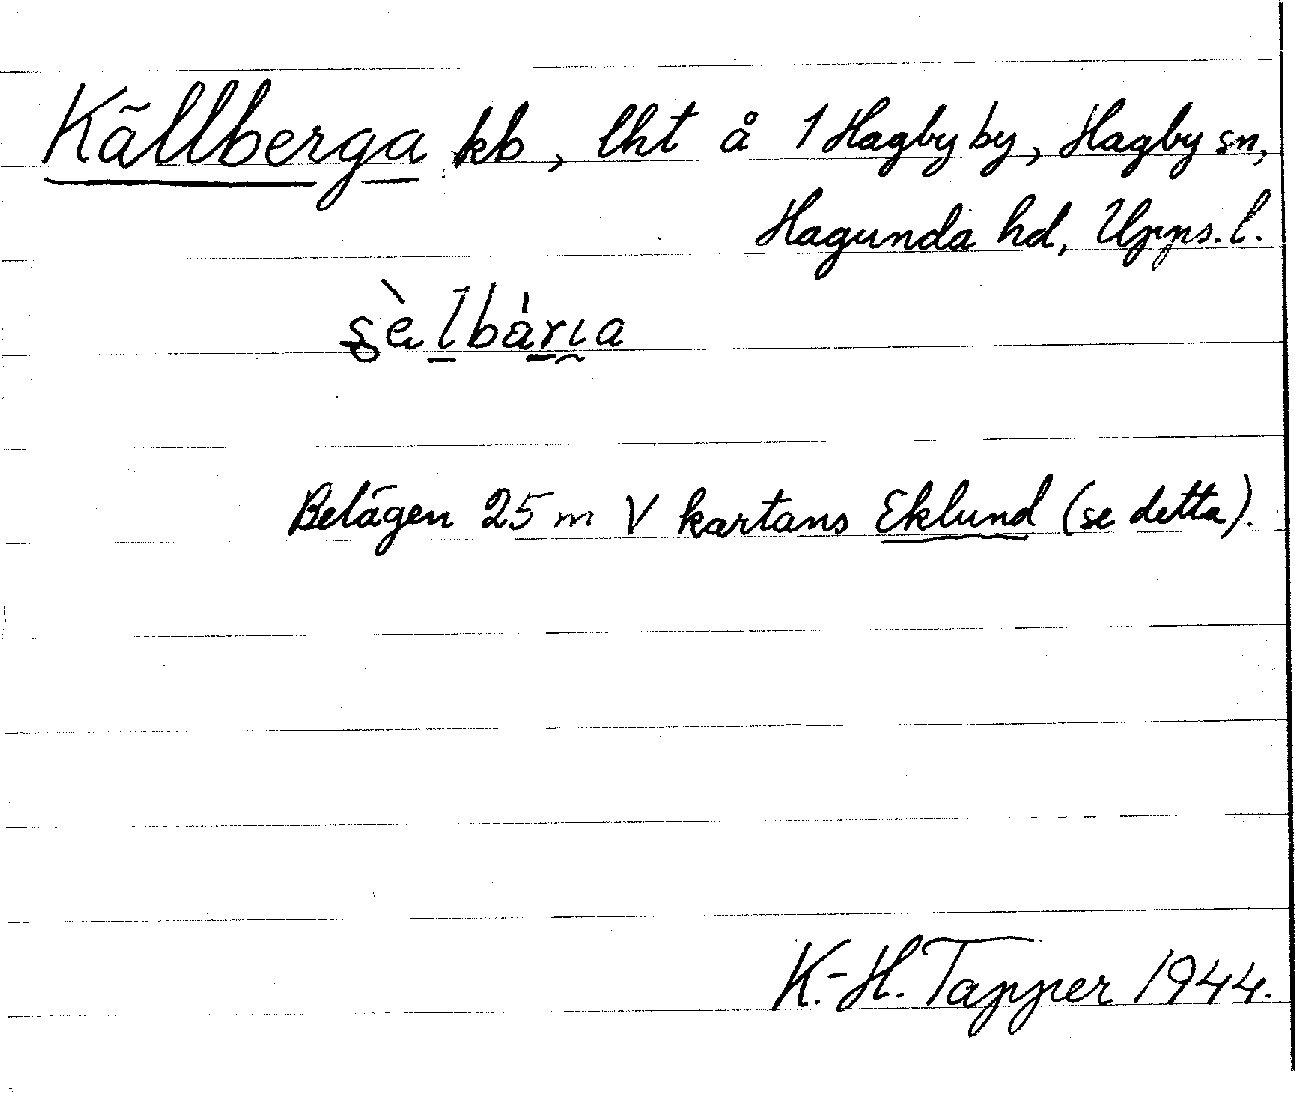 Källberga kb, lht å 1 Hagby by, Hagby sn,
Hagunda hd, Upps. l.
Belägen 25 m V kartans Eklund (se detta).
K.-H. Tapper 1944.